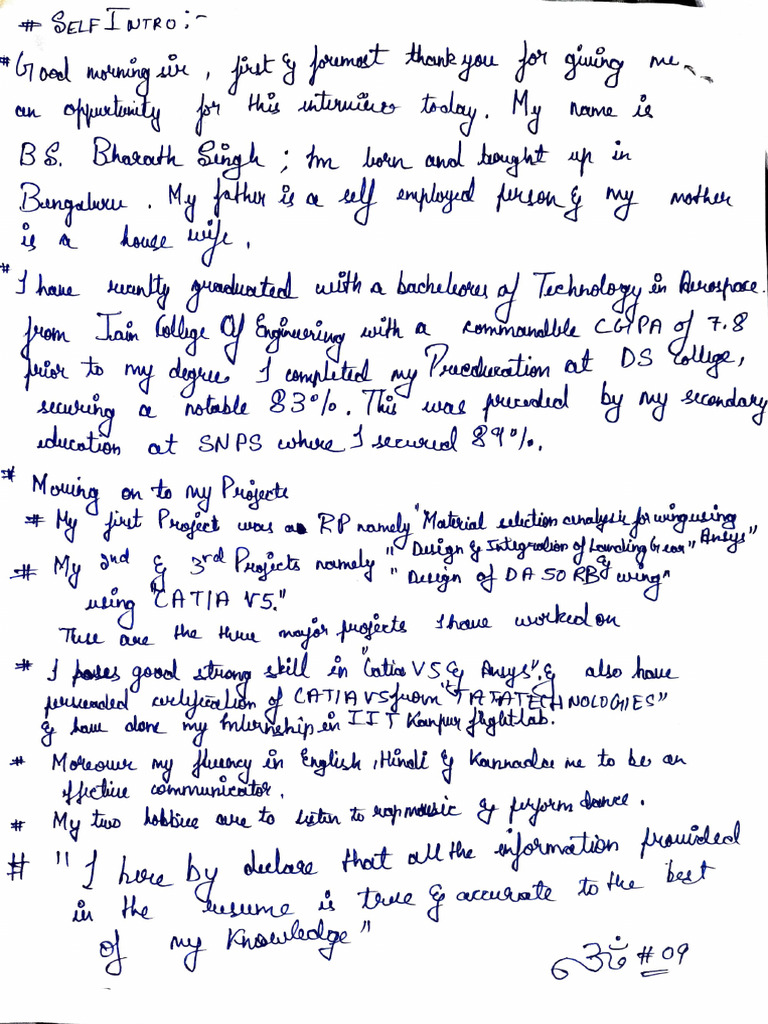 # SELF INTRO :-
* Good morning sir, first & foremost thank you for giving me
an oppurtunity for this interview today. My name is
B S. Bharath Singh ; Im born and bought up in
Bengaluru. My father is a self employed person & my mother
is a house wife.
* I have recently graduated with a bachelores of Technology in Aerospace.
from Jain College Of Engineering with a commandble CGPA of 7.8
prior to my degree I completed my Preeducation at DS College,
securing a notable 83%. This was preceded by my secondary
education at SNPS where I secured 89%.
* Moving on to my Projects
# My first Project was a RP namely "Material selection analysis for wing using Ansys"
# My 2nd & 3rd Projects namely "Design & Integration of Landing Gear" &
"Design of DA 50 RB wing"
using "CATIA V5."
These are the three major projects I have worked on
* I poses good strong skill in "Catia V5 & Ansys". & also have
certification of CATIA V5 from "TATA TECHNOLOGIES"
& have done my Internship in IIT Kanpur flight lab.
* Moreover my fluency in English, Hindi & Kannada me to be an
effictive communicator.
* My two hobbies are to listen to rap music & perform dance.
# "I here by declare that all the information provided
in the resume is true & accurate to the best
of my Knowledge"
# 09